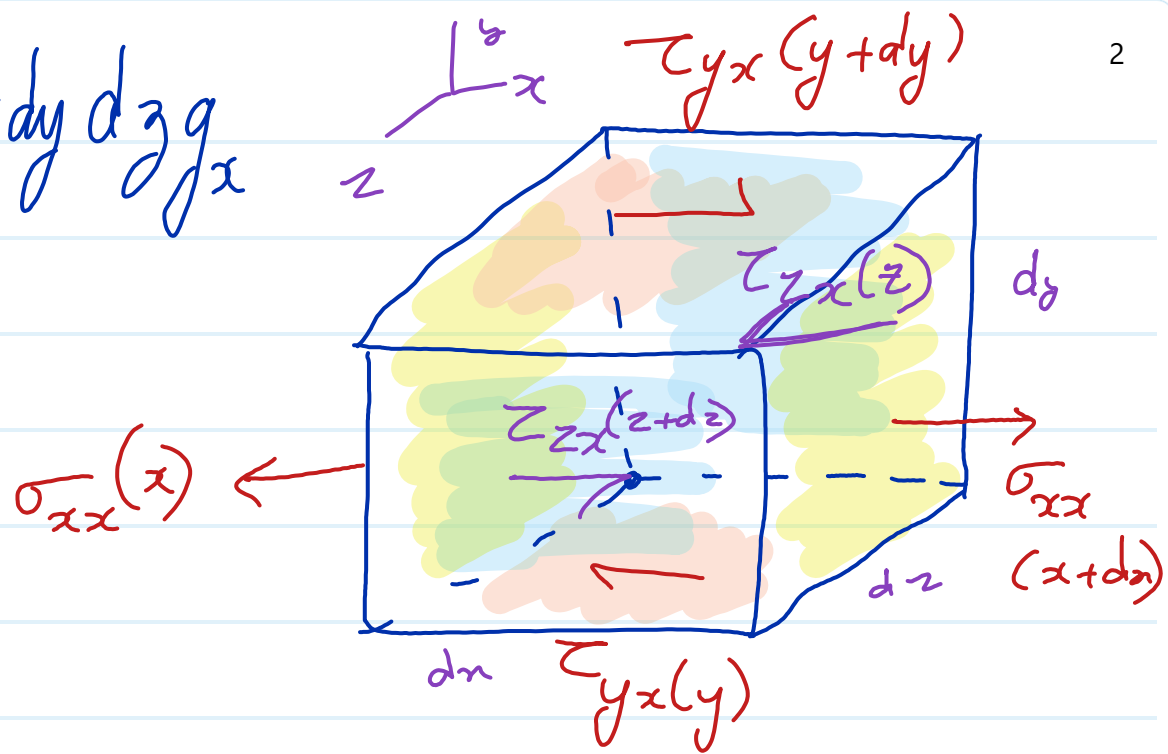 2
dy dz g_x
y
x
z
τ_yx (y+dy)
τ_zx (z)
dy
τ_zx (z+dz)
σ_xx (x)
σ_xx
(x+dx)
dz
dx
τ_yx (y)